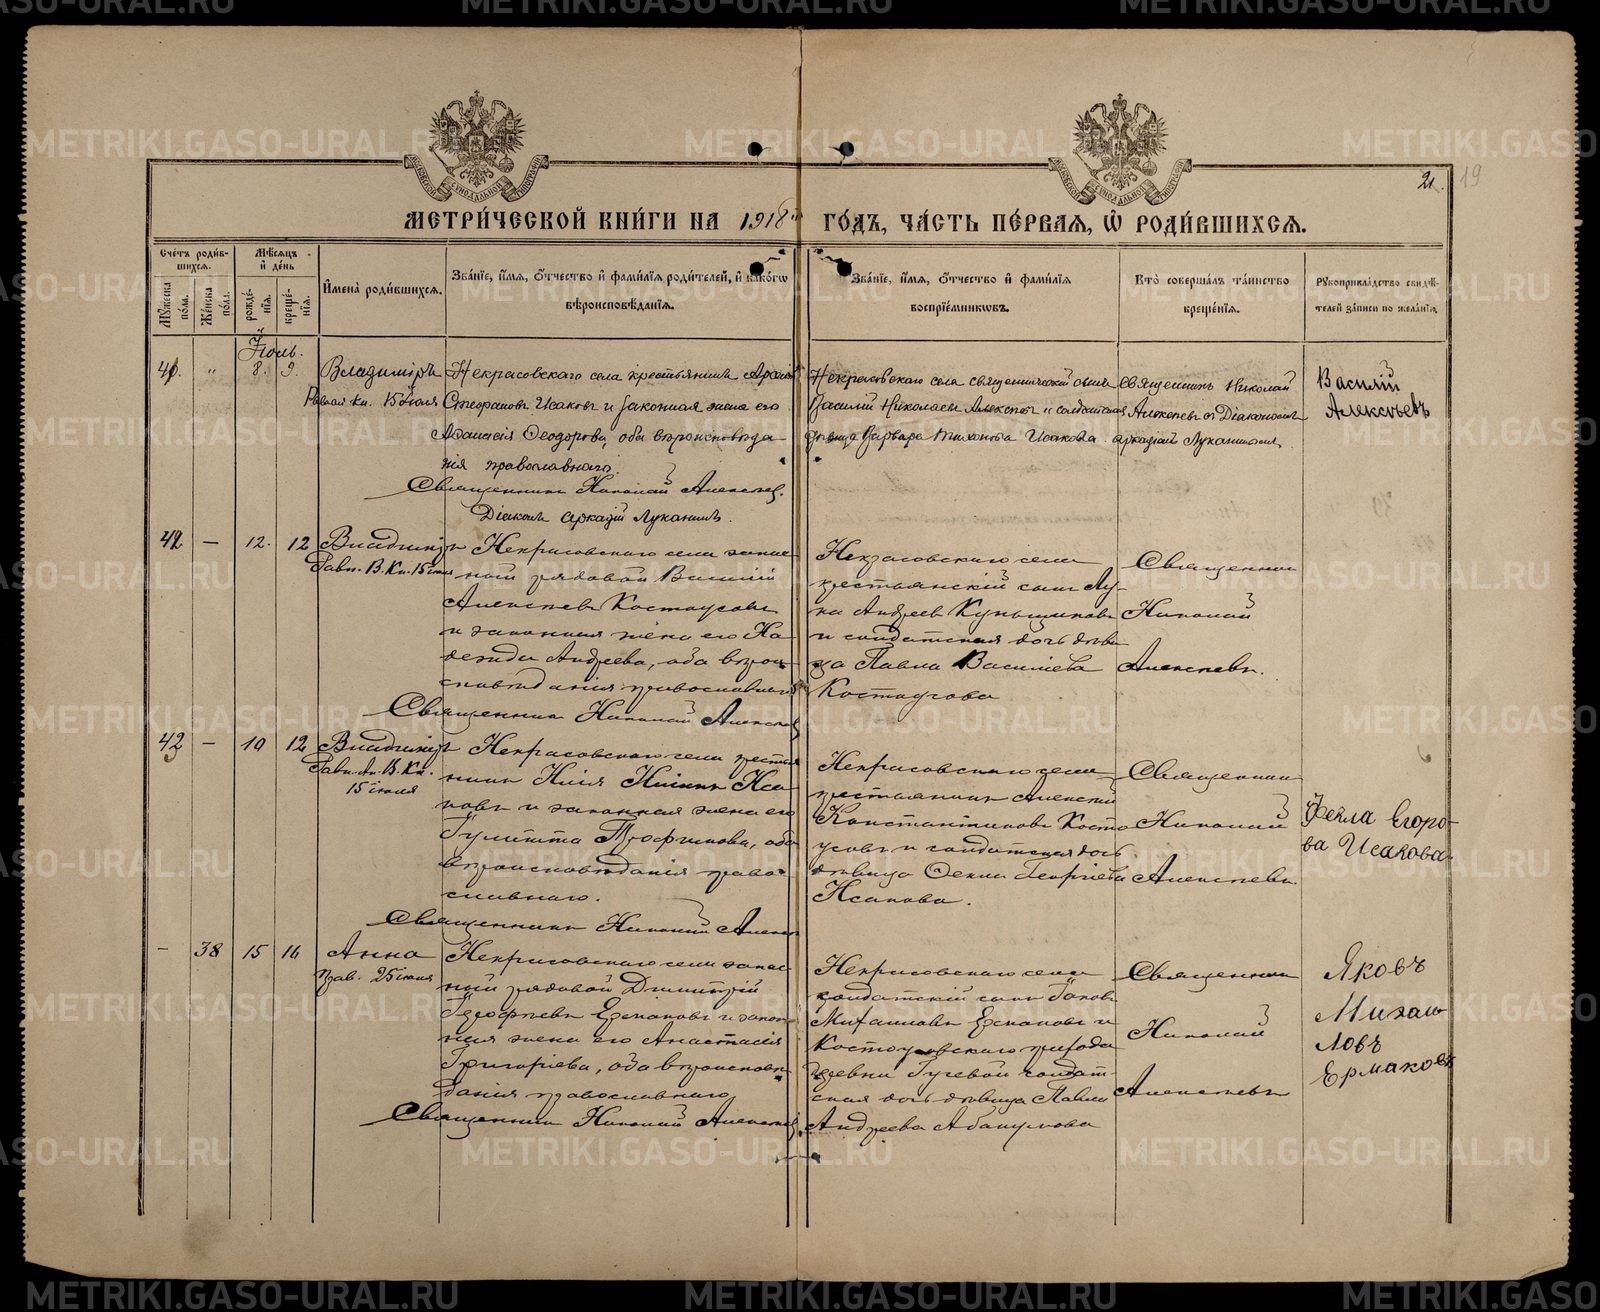 21. 19
МЕТРИ́ЧЕСКОЙ КНИ́ГИ НА 1918й ГО́ДЪ, ЧА́СТЬ ПЕ́РВАЯ, Ѡ҆ РОДИ́ВШИХСЯ.
Сче́тъ роди́вшихся.
Мѣ́сяцъ и҆ де́нь
Му́жеска по́ла.
Же́нска по́ла.
рожде́нїя.
креще́нїя.
И҆мена̀ роди́вшихся.
Зва́нїе, и҆́мя, ѻ҆́тчество и҆ фами́лїя роди́телей, и҆ како́гѡ
вѣроисповѣ́данїя.
Зва́нїе, и҆́мя, ѻ҆́тчество и҆ фами́лїя
воспрїе́мникѡвъ.
Кто̀ соверша́лъ та́инство
креще́нїя.
Рꙋкоприкла́дство свидѣ́телей за́писи по жела́нїю.
Іюль.
41. " 8. 9. Владиміръ
Равноап. Кн. 15 іюля
Некрасовскаго села крестьянинъ
Стефановъ Исаковъ и законная жена его
Аѳанасія Ѳеодорова, оба вѣроисповѣда
нія православнаго.
Священникъ Николай Алексѣев.
Діаконъ Аркадій Луканинъ.
Некрасовскаго села священническій сынъ
Василій Николаев Алексѣев и солдатская
дѣвица Варвара Тихонова Исакова.
Священникъ Николай
Алексѣевъ съ Діакономъ
Аркадіемъ Луканинымъ.
Василій
Алексѣевъ
42 — 12. 12 Владиміръ
Равн. В. Кн. 15 іюля
Некрасовскаго села запас
ный рядовой Василій
Алексѣевъ Костоусовъ
и законная жена его На
дежда Андреева, оба вѣрои
сповѣданія православнаго
Священникъ Николай Алексѣев
Некрасовскаго села
крестьянскій сынъ Лу-
ка Андреев Кукшинов
и солдатская дочь дѣви
ца Павла Василіева
Костоусова
Священник
Николай
Алексѣевъ.
43 — 10 12 Владиміръ
Равн. Ап. В. Кн.
15 іюля
Некрасовскаго села крестья
нинъ Илія Иліинъ Иса
ковъ и законная жена его
Іулитта Трофимова, оба
вѣроисповѣданія право
славнаго.
Священникъ Николай Алексѣ
Некрасовскаго села
крестьянинъ Алексій
Константиновъ Косто
усовъ и солдатская дочь
дѣвица Ѳекла Георгіева
Исакова.
Священник
Николай
Алексѣевъ.
Ѳекла Егоро-
ва Исакова
- 38 15 16 Анна
прав. 25 іюля
Некрасовскаго села запас
ный рядовой Димитрій
Ермаковъ и закон
ная жена его Анастасія
Григоріева, оба вѣроисповѣ
данія православнаго
Священник Николай Алексѣев
Некрасовскаго села
солдатскій сынъ Іаковъ
Михаиловъ Ермаковъ и
Костоусовскаго прихода
деревни Гусевой солдат-
ская дочь дѣвица Павла
Андреева Абакумова
Священник
Николай
Алексѣевъ
Яковъ
Михаи
ловъ
Ермаковъ